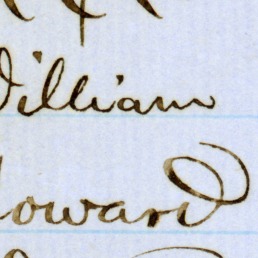 William
Howard